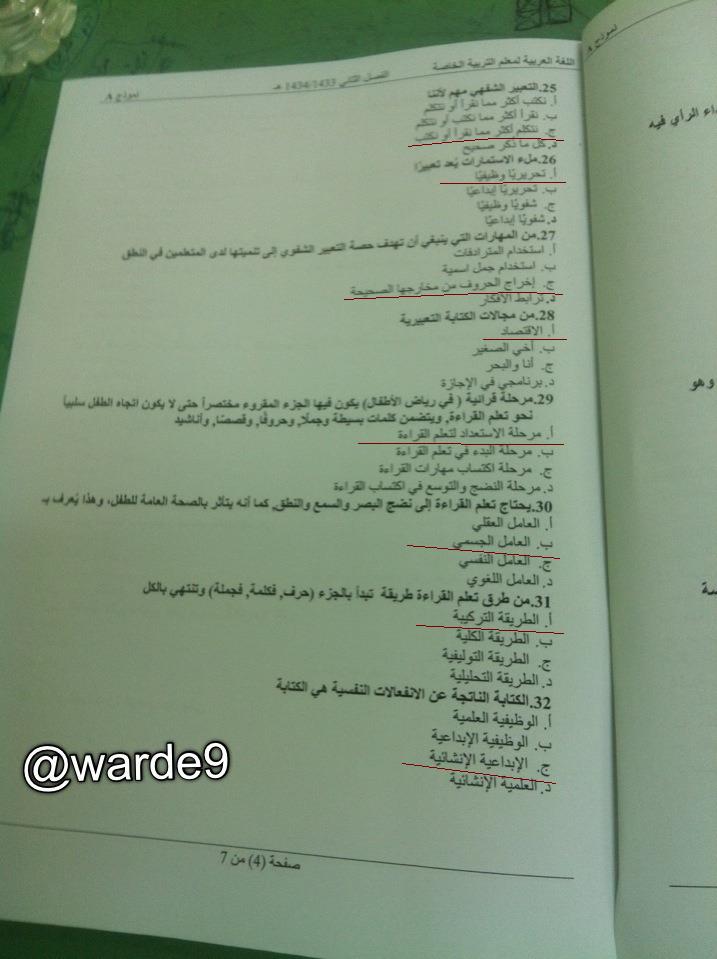 اللغة العربية لمعلم التربية الخاصة
الفصل الثاني 1434/1433 هـ
نموذج A
25.التعبير الشفهي مهم لأننا
أ. نكتب أكثر مما نقرأ أو نتكلم
ب. نقرأ أكثر مما نكتب أو نتكلم
ج. نتكلم أكثر مما نقرأ أو نكتب
د. كل ما ذكر صحيح
26.ملء الاستمارات يُعد تعبيرًا
أ. تحريريًا وظيفيًا
ب. تحريريًا إبداعيًا
ج. شفويًا وظيفيًا
د. شفويًا إبداعيًا
27.من المهارات التي ينبغي أن تهدف حصة التعبير الشفوي إلى تنميتها لدى المتعلمين في النطق
أ. استخدام المترادفات
ب. استخدام جمل اسمية
ج. إخراج الحروف من مخارجها الصحيحة
د. ترابط الأفكار
28.من مجالات الكتابة التعبيرية
أ. الاقتصاد
ب. أخي الصغير
ج. أنا والبحر
د. برنامجي في الإجازة
29.مرحلة قرائية ( في رياض الأطفال) يكون فيها الجزء المقروء مختصراً حتى لا يكون اتجاه الطفل سلبياً
نحو تعلم القراءة, ويتضمن كلمات بسيطة وجملًا, وحروفًا, وقصصًا, وأناشيد
أ. مرحلة الاستعداد لتعلم القراءة
ب. مرحلة البدء في تعلم القراءة
ج. مرحلة اكتساب مهارات القراءة
د. مرحلة النضج والتوسع في اكتساب القراءة
30.يحتاج تعلم القراءة إلى نضج البصر والسمع والنطق, كما أنه يتأثر بالصحة العامة للطفل, وهذا يُعرف بـ
أ. العامل العقلي
ب. العامل الجسمي
ج. العامل النفسي
د. العامل اللغوي
31.من طرق تعلم القراءة طريقة تبدأ بالجزء (حرف, فكلمة, فجملة) وتنتهي بالكل
أ. الطريقة التركيبة
ب. الطريقة الكلية
ج. الطريقة التوليفية
د. الطريقة التحليلية
32.الكتابة الناتجة عن الانفعالات النفسية هي الكتابة
أ. الوظيفية العلمية
ب. الوظيفية الإبداعية
ج. الإبداعية الإنشائية
د. العلمية الإنشائية
@warde9
صفحة (4) من 7
نموذج A
الرأي فيه
وهو